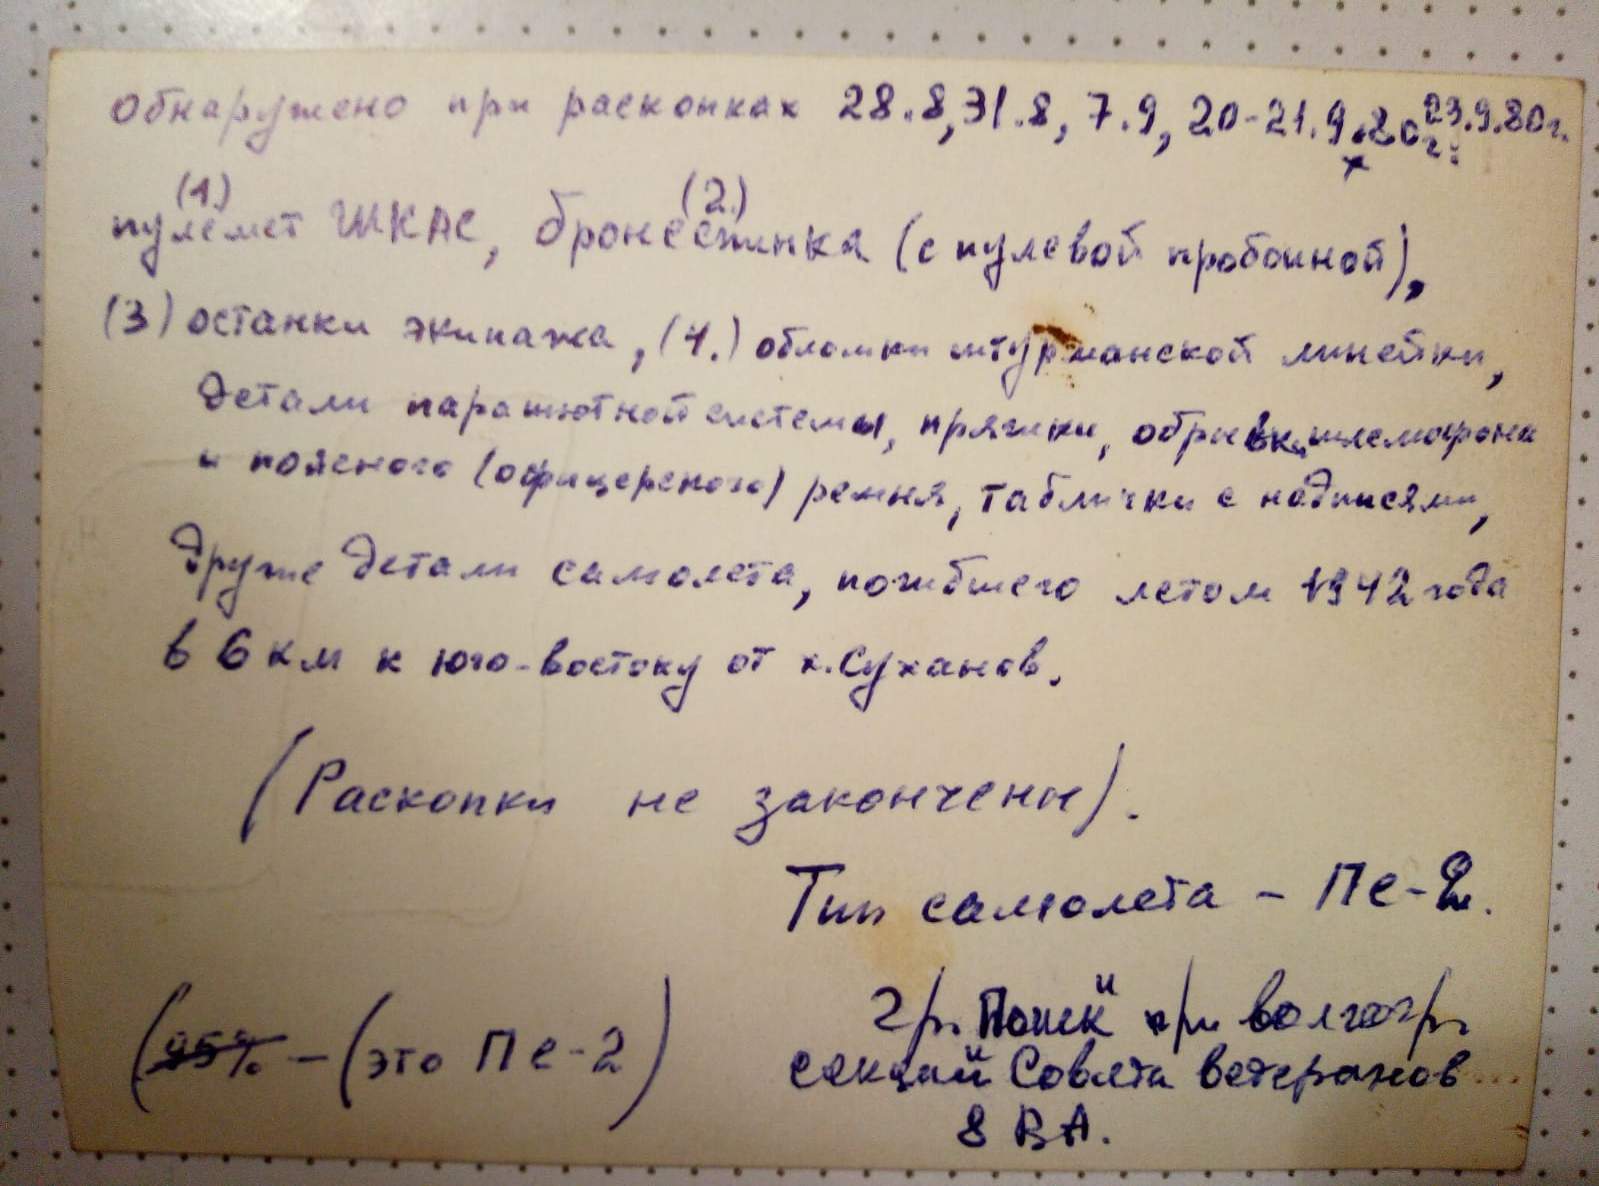 Обнаружено при раскопках 28.8, 31.8, 7.9, 20-21.9.80г. 23.9.80г.
(1.) (2.)
пулемет ШКАС, бронеспинка (с пулевой пробоиной),
(3) останки экипажа, (4.) обломки штурманской линейки,
детали парашютной системы, пряжки, обрывки шлемофона
и поясного (офицерского) ремня, таблички с надписями,
друже детали самолета, погибшего летом 1942 года
в 6 км к юго-востоку от х. Суханов.
(Раскопки не закончены).
Тип самолета - Пе-2.
(95% - (это Пе-2)
гр. Поиск" при волгогр.
секций Совета ветеранов...
8 ВА.